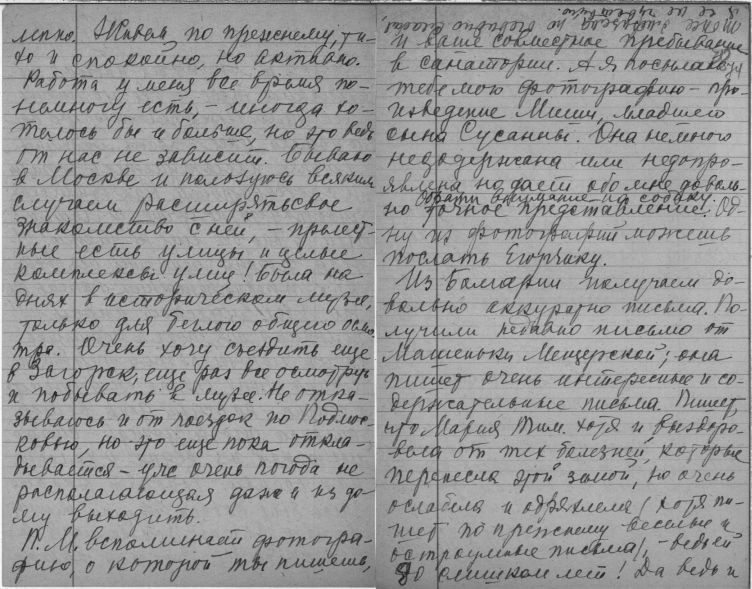 легко. Живем по прежнему, ти-
хо и спокойно, но активно.
Работа у меня все время по-
немногу есть, – иногда хо-
телось бы и больше, но это ведь
от нас не зависит. Бываю
в Москве и пользуюсь всяким
случаем расширять свое
знакомство с ней, – прелест-
ные есть улицы и целые
комплексы улиц! Была на
днях в историческом музее,
только для беглого общего осмо
тра. Очень хочу съездить еще
в Загорск, еще раз все осмотреть
и побывать в музее. Не отка-
зываюсь и от поездок по Подмос-
ковью, но это еще пока откла-
дывается – уж очень погода не
располагающая даже и из до-
му выходить.
П. М. вспоминает фотогра-
фию, о которой ты пишешь,
и ваше совместное пребывание
в санатории. А я посылаю
тебе мою фотографию – про-
изведение Миши, младшего
сына Сусанны. Она немного
недодержана или недопро-
явлена но дает обо мне доволь-
Обрати внимание на собаку.
но точное представление. Од-
ну из фотографий можешь
послать Егорчику.
Из Болгарии получаем до-
вольно аккуратно письма. По-
лучили недавно письмо от
Машеньки Мещерской; она
пишет очень интересные и со-
держательные письма. Пишет,
что Мария Тим. хотя и выздоро-
вела от тех болезней, которые
перенесла этой зимой, но очень
ослабела и одряхлела (хотя пи-
шет по прежнему веселые и
остроумные письма), – ведь ей
90 слишком лет! Да ведь и